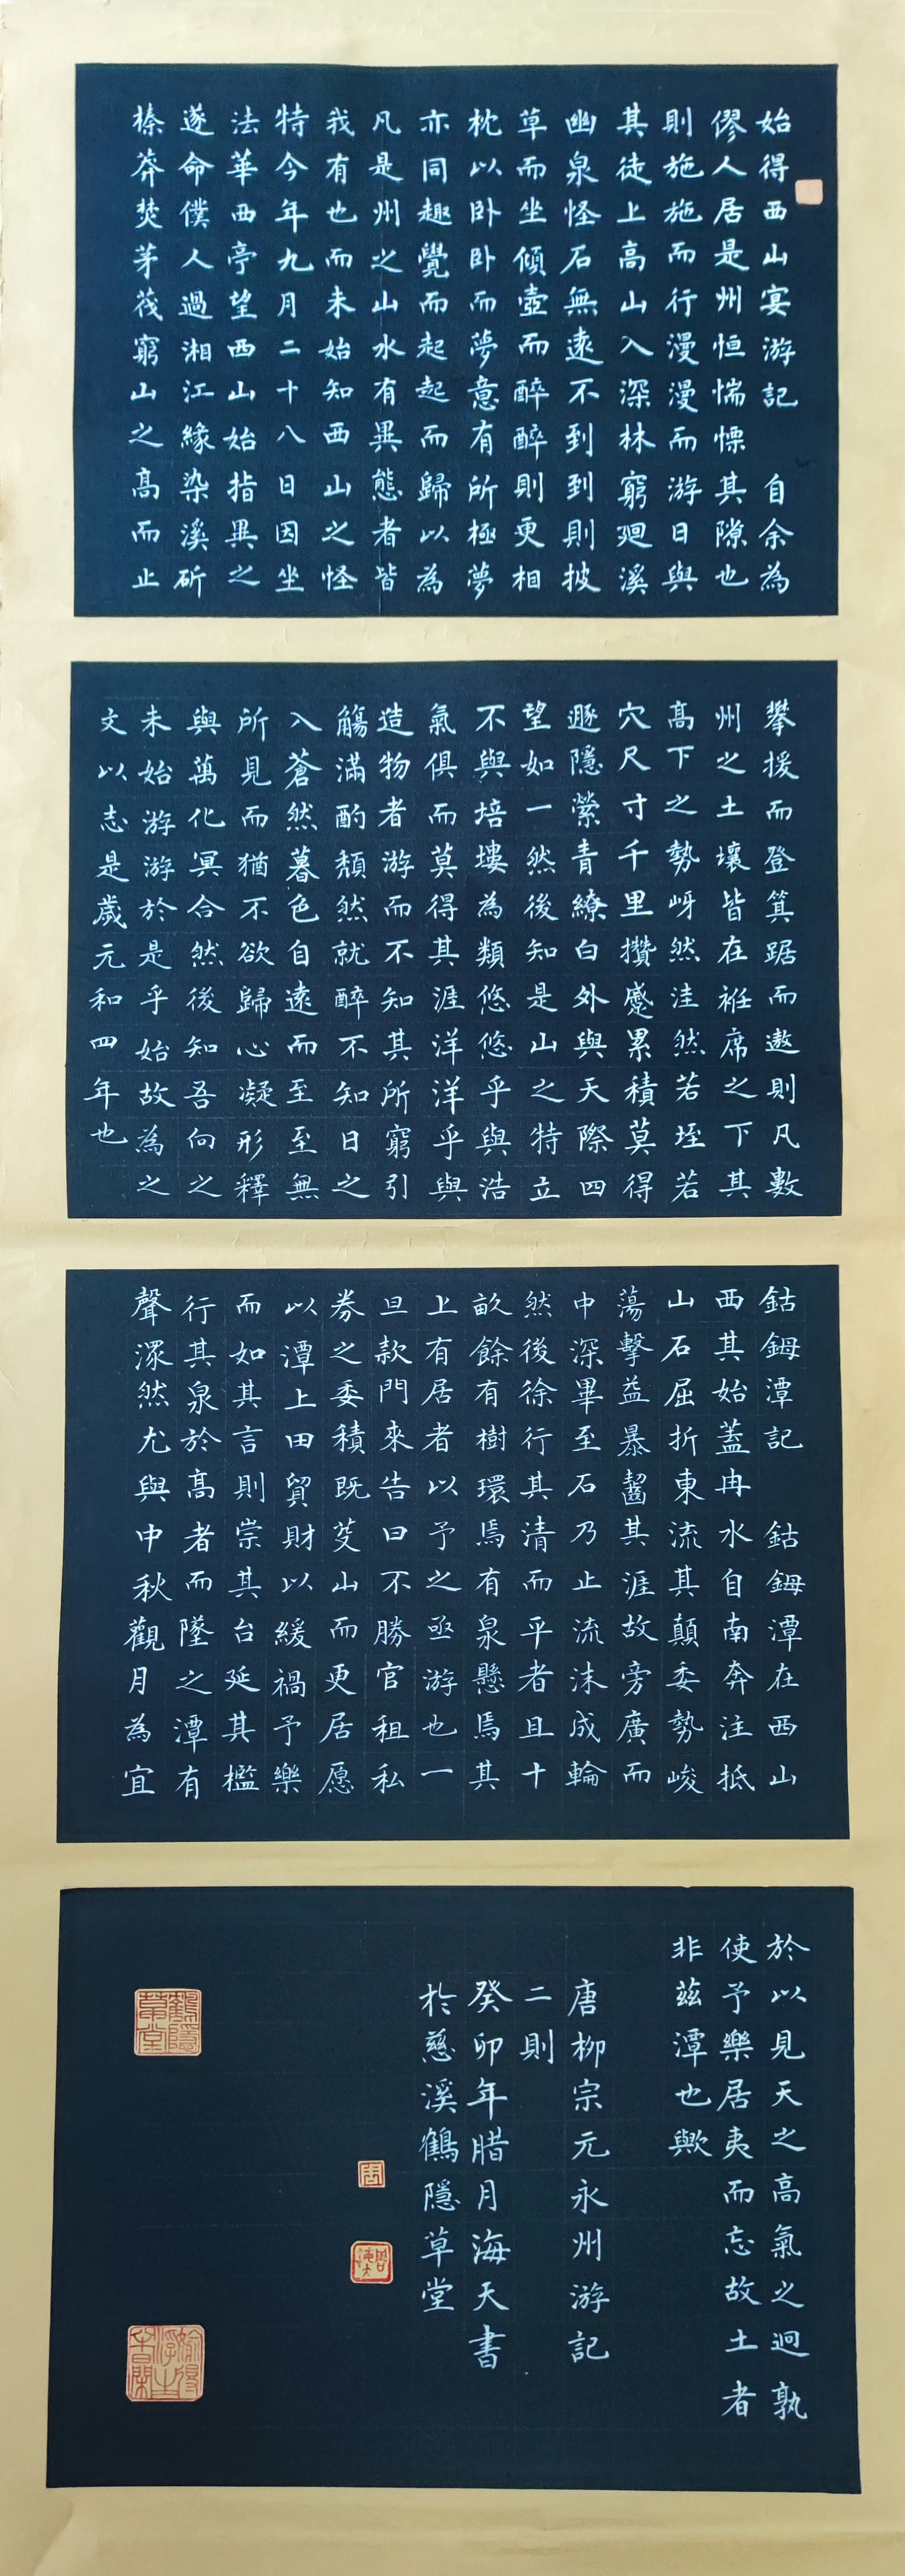 始得西山宴游記　自余為
僇人居是州恒惴慄其隙也
則施施而行漫漫而游日與
其徒上高山入深林窮廻溪
幽泉怪石無遠不到到則披
草而坐傾壺而醉醉則更相
枕以卧卧而夢意有所極夢
亦同趣覺而起起而歸以為
凡是州之山水有異態者皆
我有也而未始知西山之怪
特今年九月二十八日因坐
法華西亭望西山始指異之
遂命僕人過湘江緣染溪斫
榛莽焚茅茷窮山之高而止
攀援而登箕踞而遨則凡數
州之土壤皆在袵席之下其
高下之勢岈然洼然若垤若
穴尺寸千里攢蹙累積莫得
遯隱縈青繚白外與天際四
望如一然後知是山之特立
不與培塿為類悠悠乎與浩
氣俱而莫得其涯洋洋乎與
造物者游而不知其所窮引
觴滿酌頹然就醉不知日之
入蒼然暮色自遠而至至無
所見而猶不欲歸心凝形釋
與萬化冥合然後知吾向之
未始游游於是乎始故為之
文以志是歲元和四年也
鈷鉧潭記　鈷鉧潭在西山
西其始蓋冉水自南奔注抵
山石屈折東流其顛委勢峻
蕩擊益暴齧其涯故旁廣而
中深畢至石乃止流沫成輪
然後徐行其清而平者且十
畝餘有樹環焉有泉懸焉其
上有居者以予之亟游也一
旦款門來告曰不勝官租私
券之委積既芟山而更居愿
以潭上田貿財以緩禍予樂
而如其言則崇其台延其檻
行其泉於高者而墜之潭有
聲潈然尤與中秋觀月為宜
於以見天之高氣之迥孰
使予樂居夷而忘故土者
非茲潭也歟
唐柳宗元永州游記
二則
癸卯年腊月海天書
於慈溪鶴隱草堂
鶴隱草堂
周